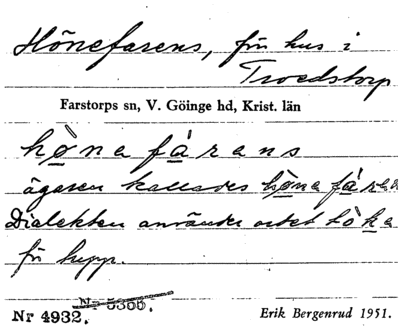 Hönefarens, fm hus i
Troedstorp
Farstorps sn, V. Göinge hd, Krist. län
hønafárans
ägaren kallades hønafáran
Dialekten använder ordet tòka
för hypp.
Nr 5366.
Nr 4932.
Erik Bergenrud 1951.